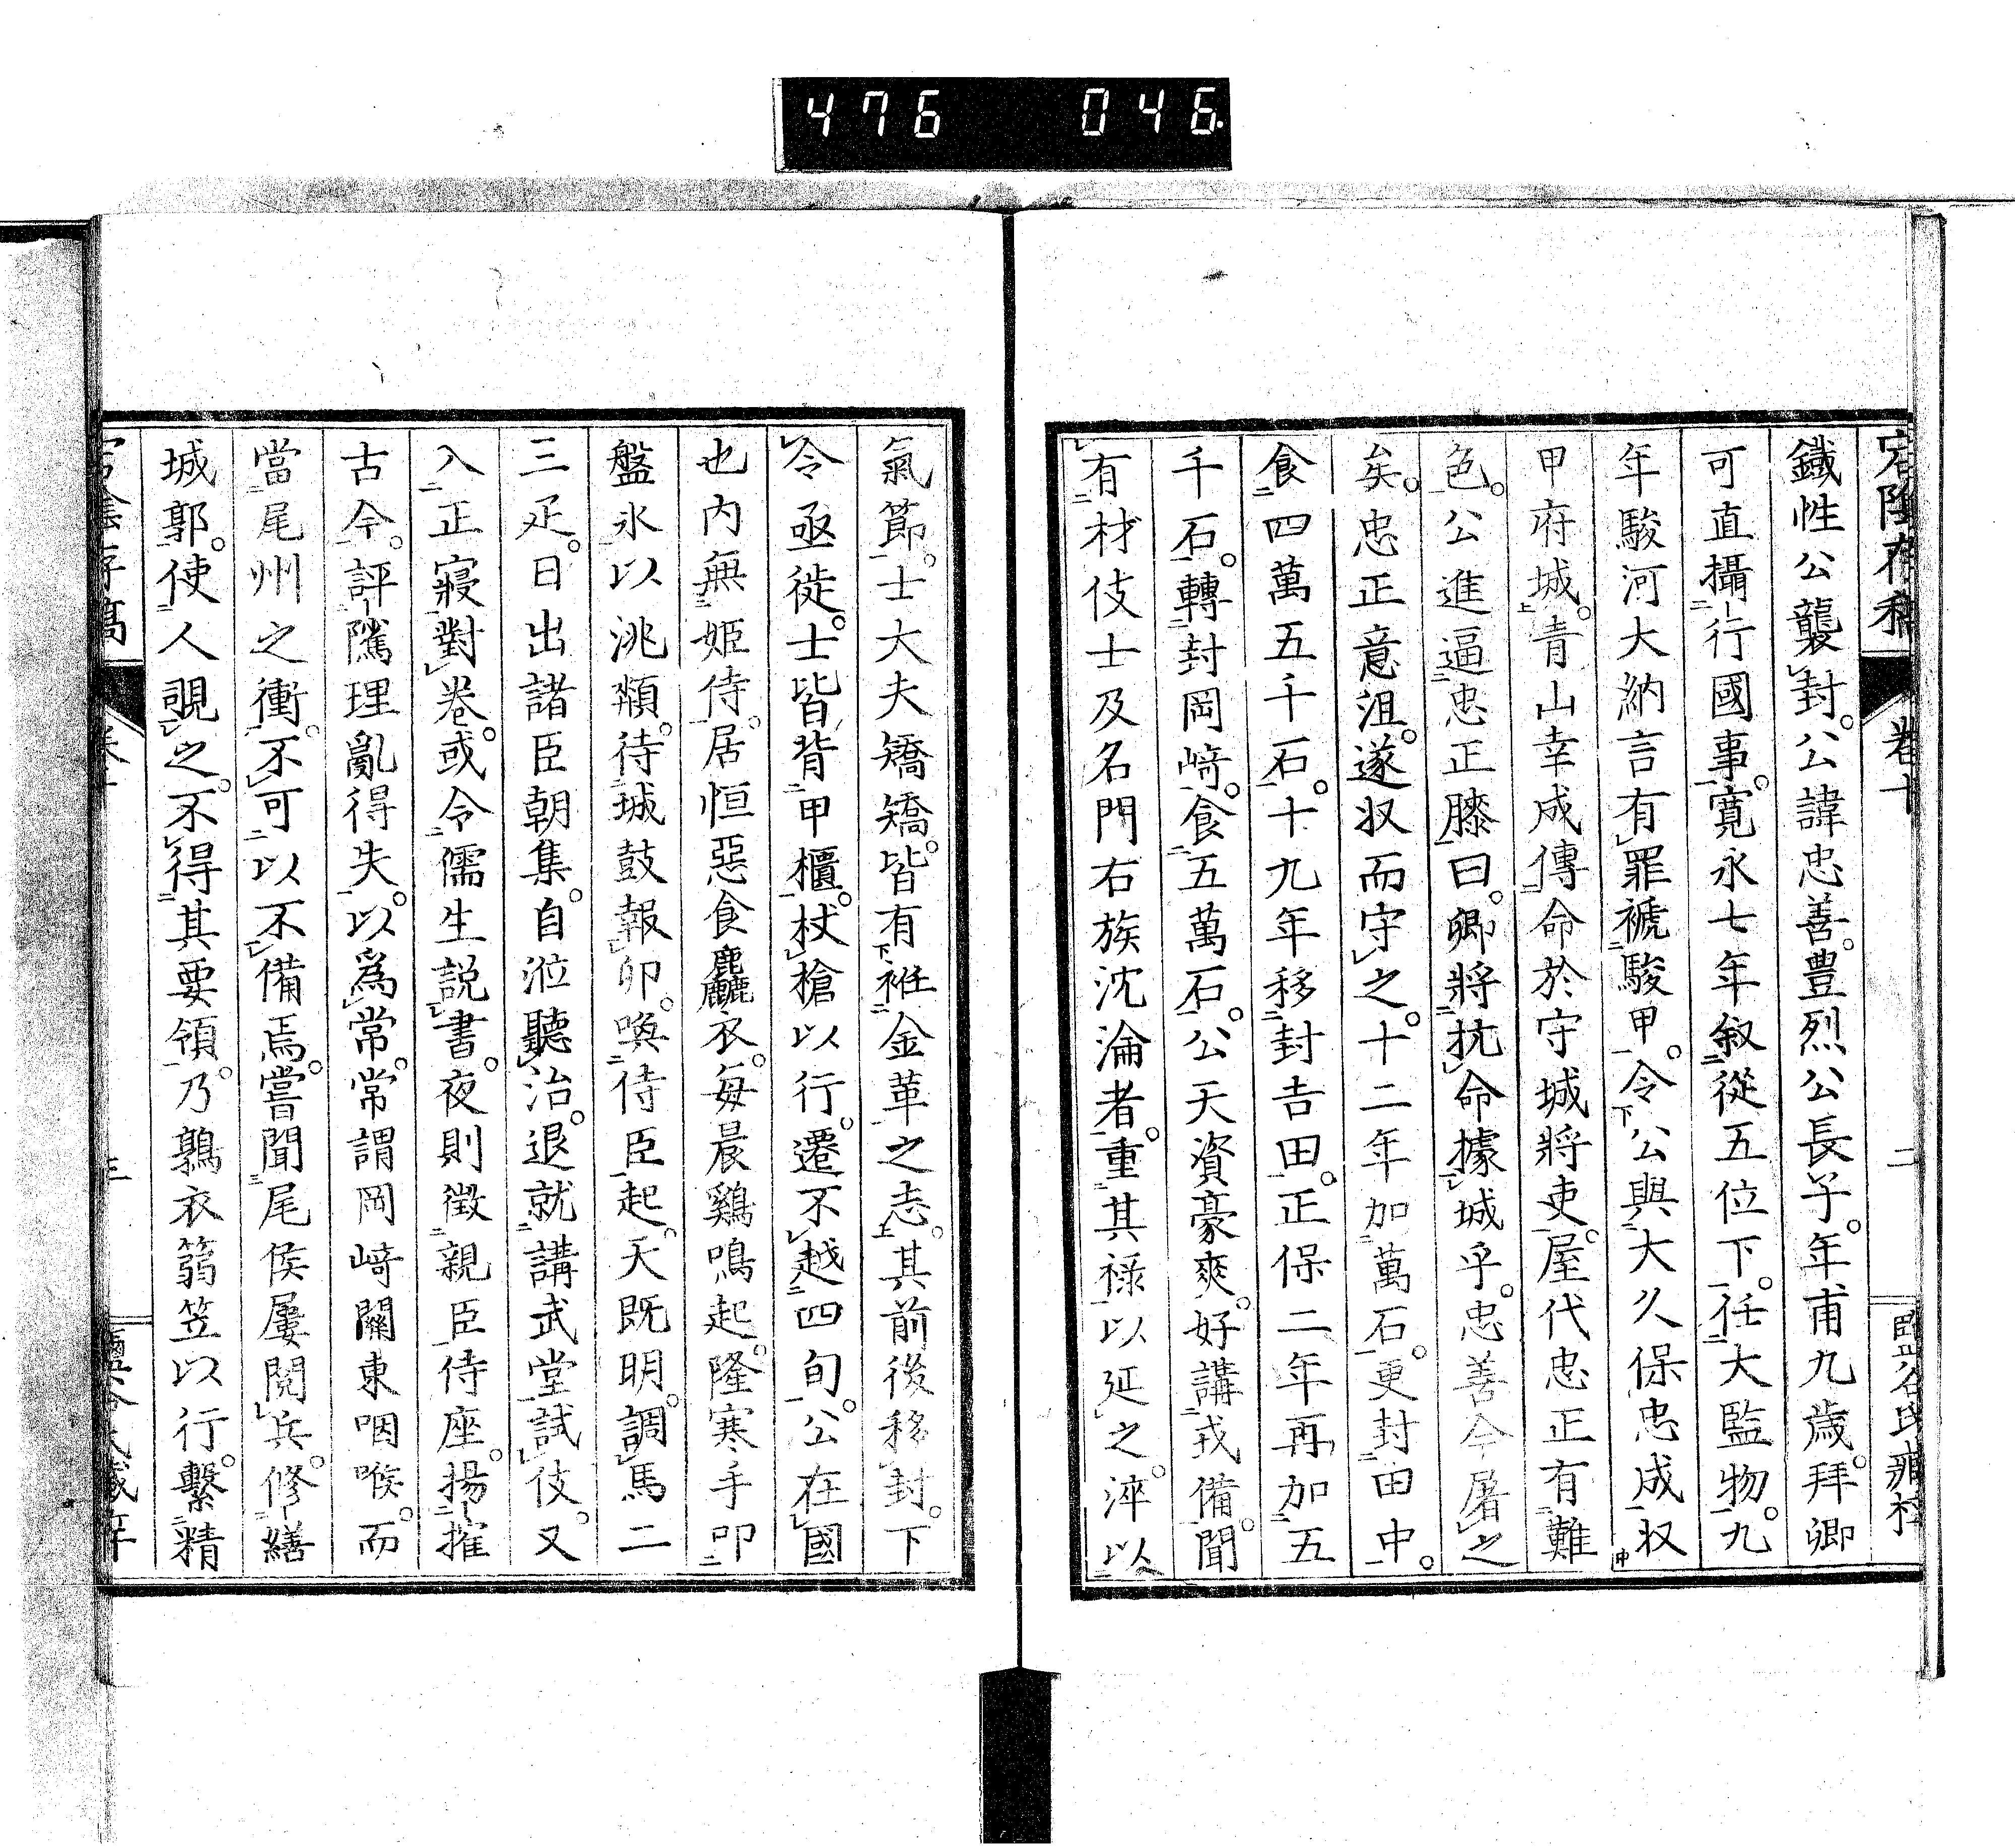 476 046
宕陰存稿 卷十 二
鐵性公襲封。公諱忠善。豊烈公長子。年甫九歲。拜卿
可直攝行國事。寛永七年叙從五位下。任大監物。九
年駿河大納言有罪褫駿甲。令公與大久保忠成収
甲府城。青山幸成傳命於守城將吏。屋代忠正有難
色。公進逼忠正膝曰。卿將抗命據城乎。忠善今屠之
矣。忠正意沮。遂収而守之。十二年加萬石。更封田中。
食四萬五千石。十九年移封吉田。正保二年再加五
千石。轉封岡﨑。食五萬石。公天資豪爽。好講戎備。聞
有材伎士及名門右族沈淪者。重其祿以延之。淬以
氣節。士大夫矯矯。皆有袵金革之志。其前後移封。下
令亟徙。士皆背甲櫃。杖槍以行。遷不越四旬。公在國
也內無姬侍。居恒惡食麤衣。每晨鷄鳴起。隆寒手叩
盤氷以洮頮。待城鼓報卯。喚侍臣起。天既明。調馬二
三疋。日出諸臣朝集。自涖聽治。退就講武堂試伎。又
入正寢對卷。或令儒生説書。夜則徴親臣侍座。揚搉
古今。評隲理亂得失。以爲常。常謂岡﨑關東咽喉。而
當尾州之衝。不可以不備焉。嘗聞尾侯屢閱兵。修繕
城郭。使人覘之。不得其要領。乃鶉衣篛笠以行。繫精